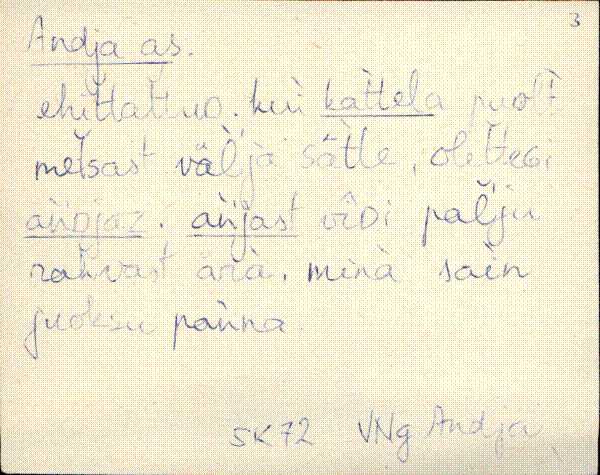 3
Andja as.
ehittattuD. kui kattela puolt
metsast välja sàtte, olettegi
anDjaz. anjast vìDi palju
rahvast ära. minà sain
juoksu panna.
SK72 VNg Andja